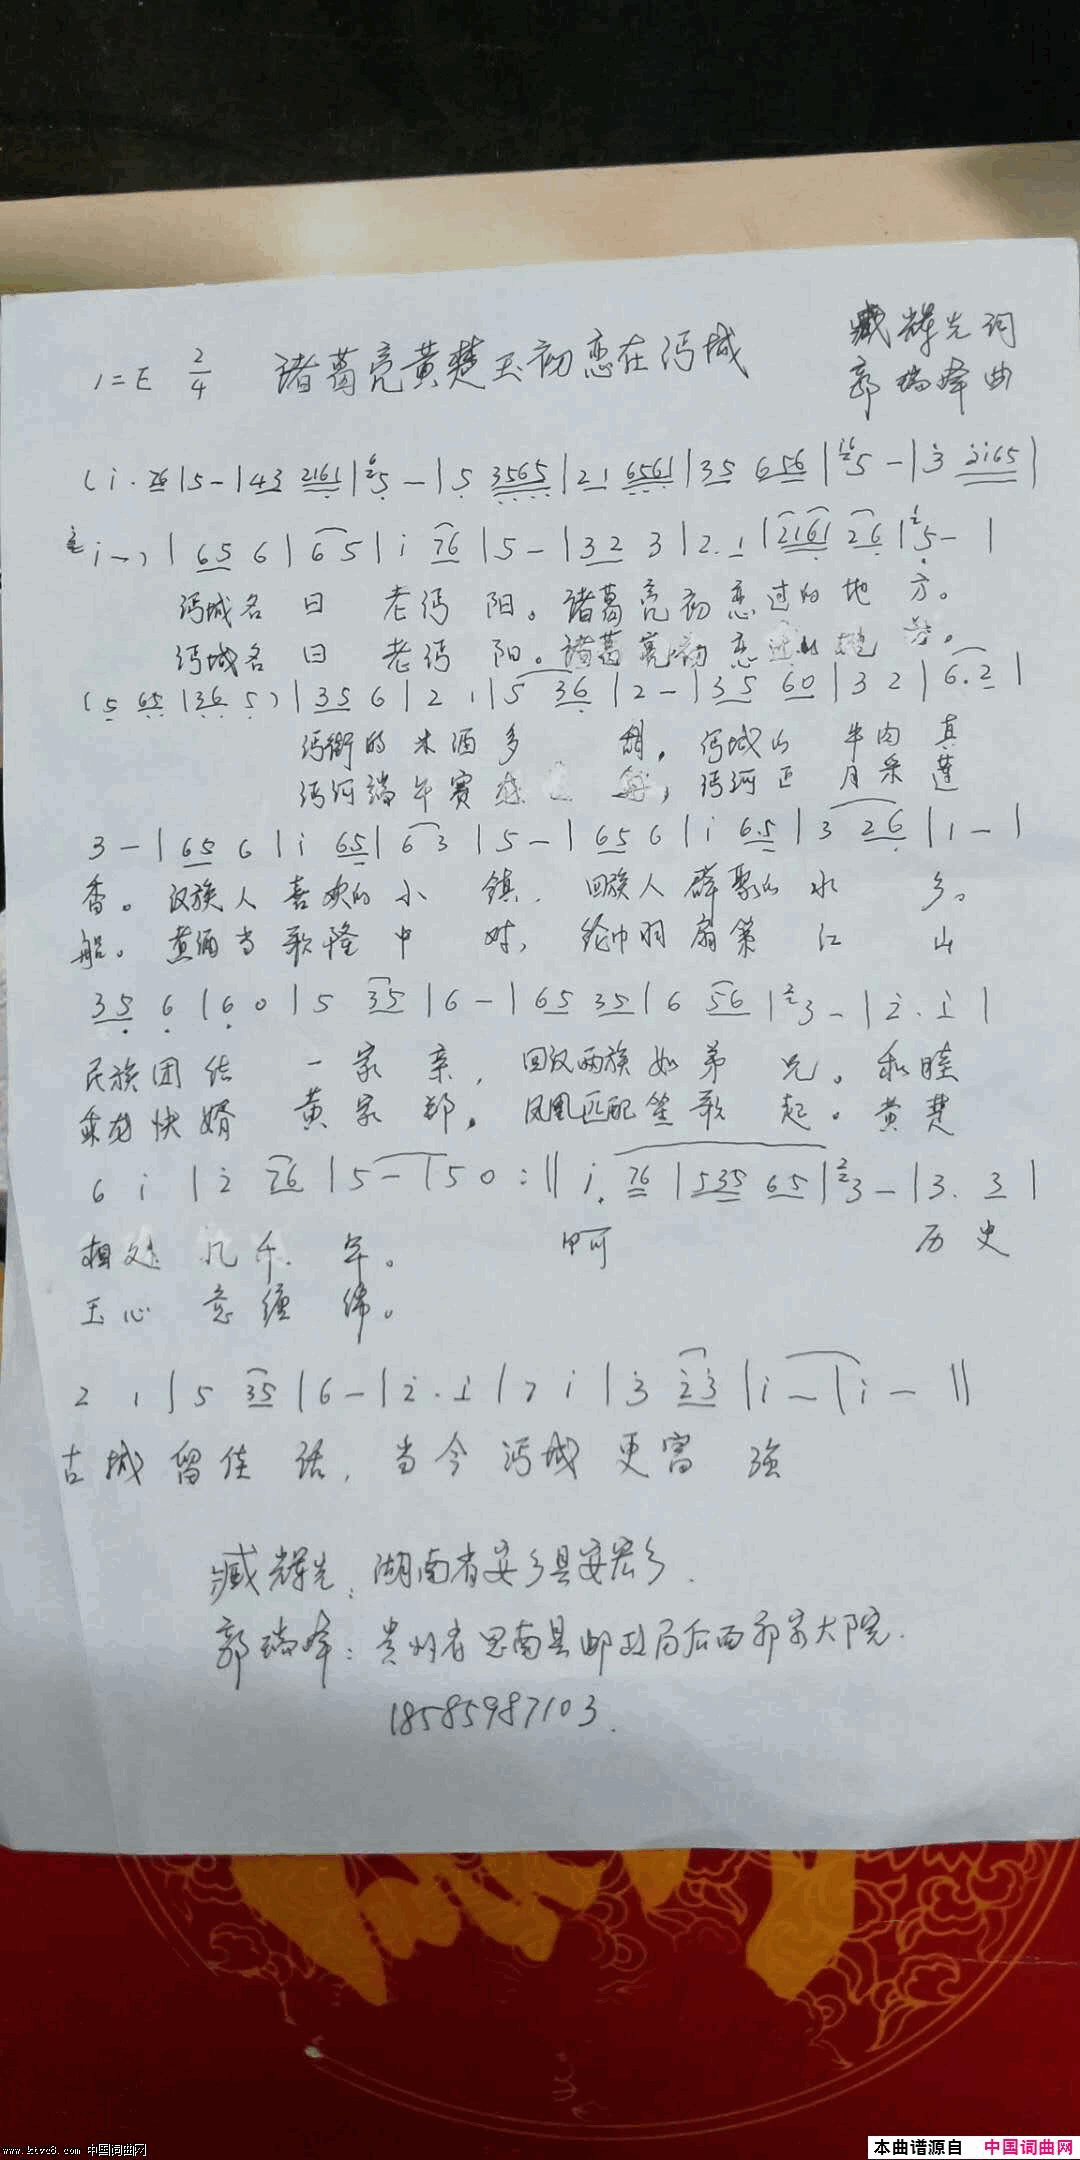 1=E 2/4 诸葛亮黄楚玉初恋在沔城 臧辉先词
郭瑞峰曲
(i· 76|5-|43 2161|5-|5 3565|21 6561|35 656|5-|3 2i65|
i-)|65 6|6 5|i 76|5-|32 3|2·1|2161 26|5-|
沔城名曰 老沔阳。诸葛亮初恋过的地方。
沔城名曰 老沔阳。诸葛亮初恋过的地方。
(5 65|36 5)|35 6|2 1|5 36|2-|35 60|3 2|6·2|
沔街的米酒多 甜,沔城的牛肉真
沔河端午赛 ,沔河正月采莲
3-|65 6|i 65|6 3|5-|65 6|i 6·5|3 26|1-|
香。汉族人喜欢的小镇,回族人群聚的水乡。
船。黄酒当歌隆中对,纶巾羽扇策江山
35 6|6 0|5 35|6-|65 35|6 56|3-|2·i|
民族团结 一家亲,回汉两族如弟兄。和睦
乘龙快婿 黄家郎,凤凰匹配笙歌起。黄楚
6 i|2 76|5-|5 0:‖i· 76|535 65|3-|3·3|
相处几千年。 呵 历史
玉心意缠绵。
2 1|5 35|6-|2·i|7 i|3 23|i-|i-‖
古城留佳话,当今沔城更富强
臧辉先:湖南省安乡县安宏乡.
郭瑞峰:贵州省思南县邮政局后面郭家大院.
18585987103.
www.ktvc8.com 中国词曲网
本曲谱源自 中国词曲网